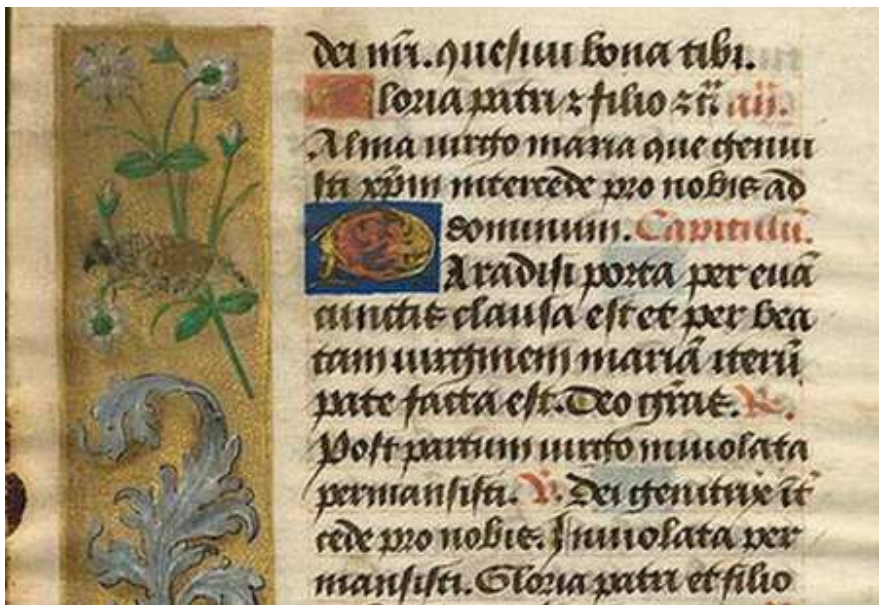 dei nr̄i. quesiui bona tibi.
Gloria patri ⁊ filio ⁊ c̄ añ.
Alma uirgo maria que genui
sti xp̄m intercede pro nobis ad
dominum. Capitulū.
Paradisi porta per euā
cunctis clausa est et per bea
tam uirginem mariā iterū
pate facta est. Deo gr̄as. R.
Post partum uirgo inuiolata
permansisti. V. Dei genitrix īt
cede pro nobis. Inuiolata per
mansisti. Gloria patri et filio